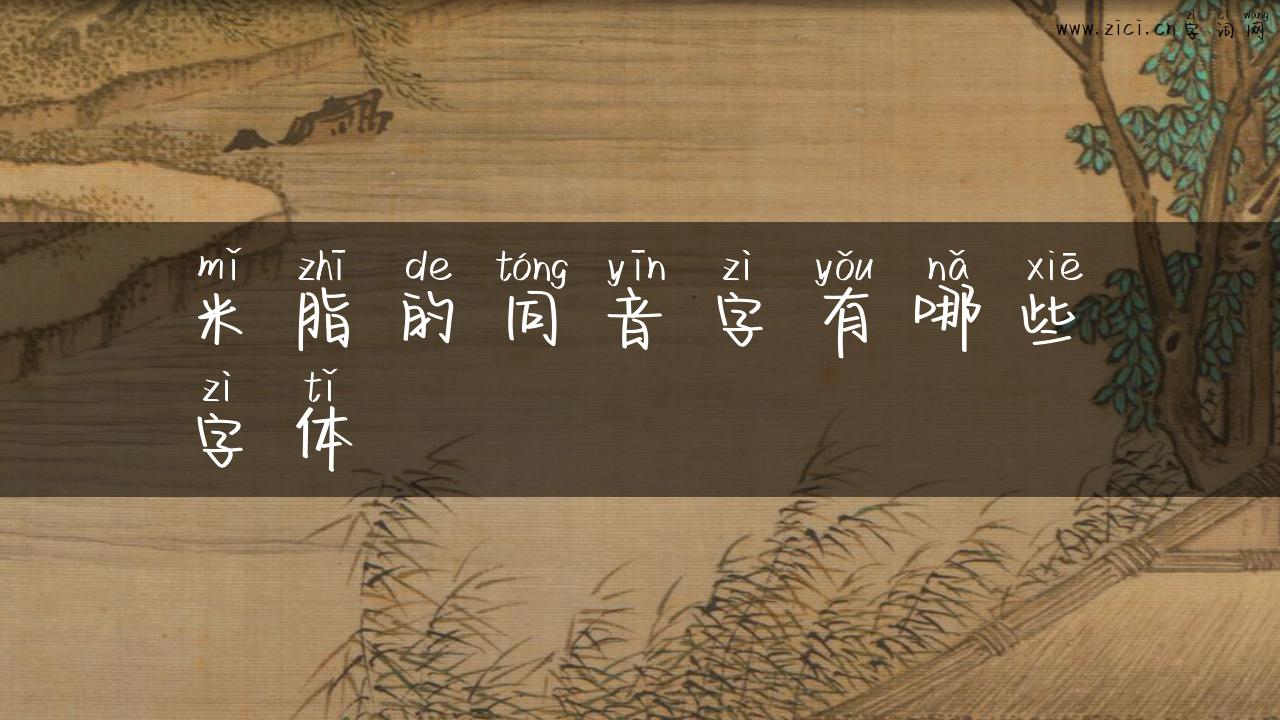 zì cí wǎng
www.zici.cn字词网
mǐ zhī de tóng yīn zì yǒu nǎ xiē
米脂的同音字有哪些
zì tǐ
字体